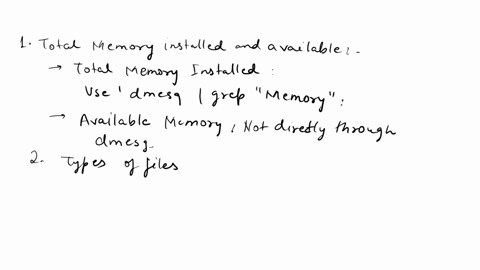 1. Total Memory installed and available:-
→ Total Memory Installed:
Use 'dmesg | grep "Memory":
→ Available Memory, Not directly through
dmesg.
2. Types of files